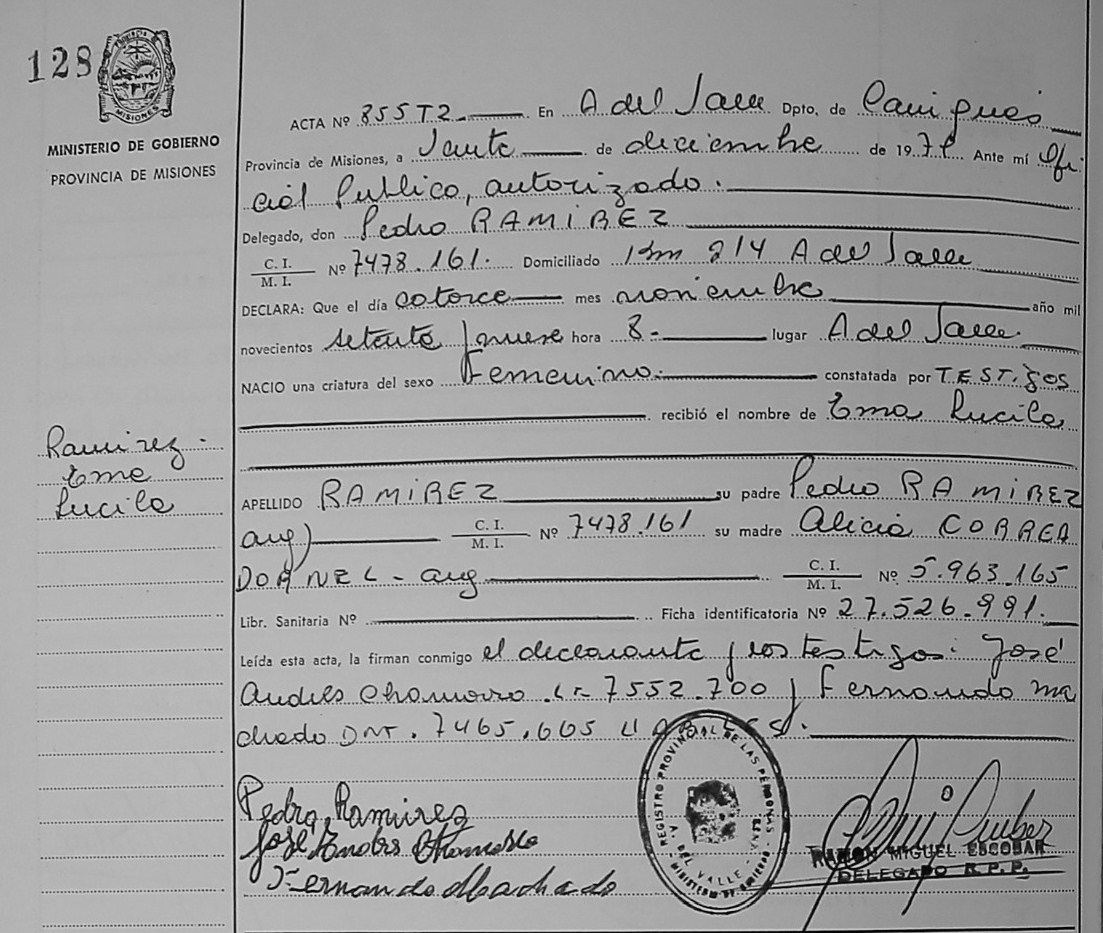 128
PROVINCIA
MISIONES
MINISTERIO DE GOBIERNO
PROVINCIA DE MISIONES
ACTA Nº 355T2 En A del Valle Dpto, de Cainguás
Provincia de Misiones, a de diciembre de 197 Ante mí Ofi
cial Publico, autorizado.
Delegado, don Pedro RAMIREZ
C. I.
M. I. Nº 7478.161. Domiciliado Km 214 A del Valle
DECLARA: Que el día catorce mes noviembre año mil
novecientos setenta y nueve hora 8- lugar A del Valle
NACIO una criatura del sexo Femenino. constatada por TESTigos
recibió el nombre de Ema Lucila
Ramirez.
Ema
Lucila
APELLIDO RAMIREZ su padre Pedro RAMIREZ
arg) C. I.
M. I. Nº 7478.161 su madre Alicia CORREA
DORNEL - arg C. I.
M. I. Nº 5.963.165
Libr. Sanitaria Nº Ficha identificatoria Nº 27.526.991.
Leída esta acta, la firman conmigo el declarante y los testigos: José
Andres Chamorro 7552.700 y Fernando Ma
chado DNI. 7465.665
Pedro Ramires
José Andres
Fernando Machado
REGISTRO PROVINCIAL DE LAS PERSONAS
A DEL VALLE
MINISTERIO DE GOBIERNO
RAMON MIGUEL ESCOBAR
DELEGADO R.P.P.